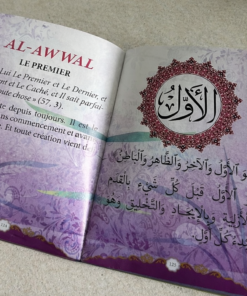 AL-AWWAL
LE PREMIER
Lui Le Premier et Le Dernier, et
nt et Le Caché, et Il sait parfai-
oute chose » (57, 3).
e depuis toujours. Il est
ns commencement et avai
. Et toute création vient d
الأَوَّلُ
هُوَ الأَوَّلُ وَالآخِرُ وَالظَّاهِرُ وَالْبَاطِنُ
الأَوَّلُ قَبْلَ كُلِّ شَيْءٍ بِالقِدَمِ
لِيَّةِ وَبِالإِيجَادِ وَالتَّخْلِيقِ وَهُوَ
كُلِّ أَوَّلٍ